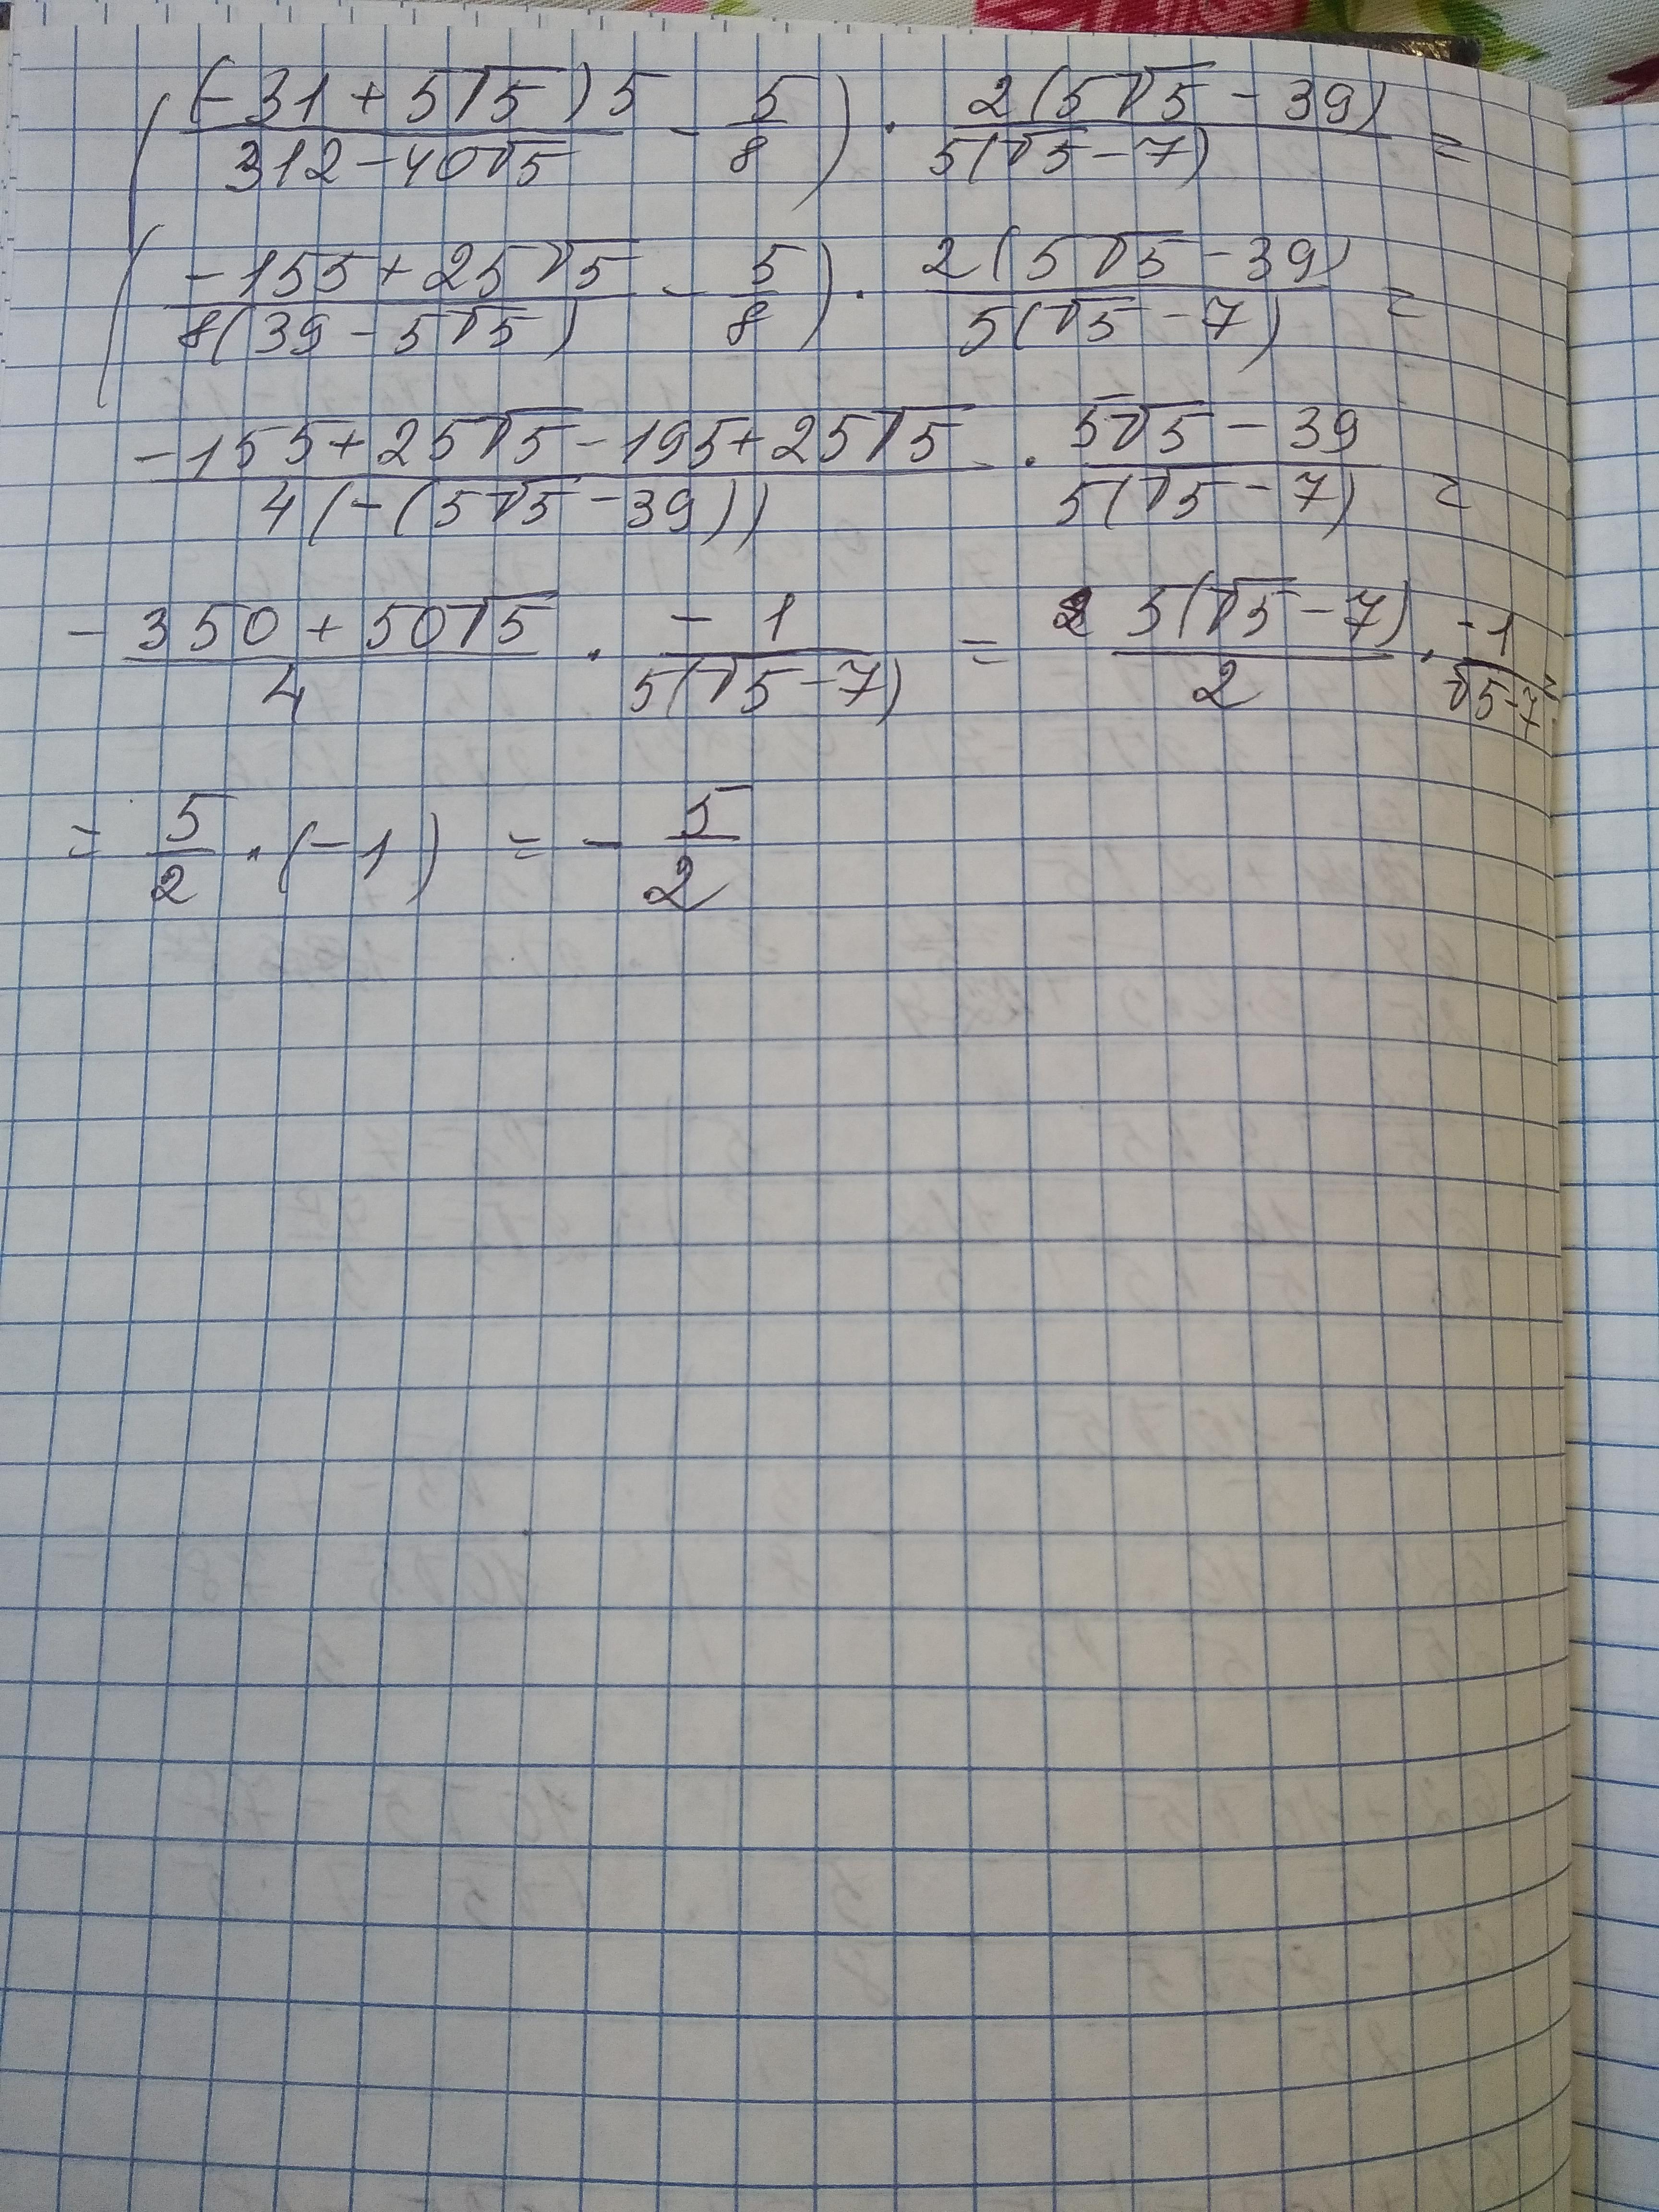 ( (-31 + 5√5)5 / 312 - 40√5 - 5/8 ) · 2(5√5 - 39) / 5(√5 - 7) =
( -155 + 25√5 / 8(39 - 5√5) - 5/8 ) · 2(5√5 - 39) / 5(√5 - 7) =
-155 + 25√5 - 195 + 25√5 / 4(-(5√5 - 39)) · 5√5 - 39 / 5(√5 - 7) =
- 350 + 50√5 / 4 · -1 / 5(√5 - 7) = 5(√5 - 7) / 2 · -1 / √5 - 7 =
= 5/2 · (-1) = - 5/2